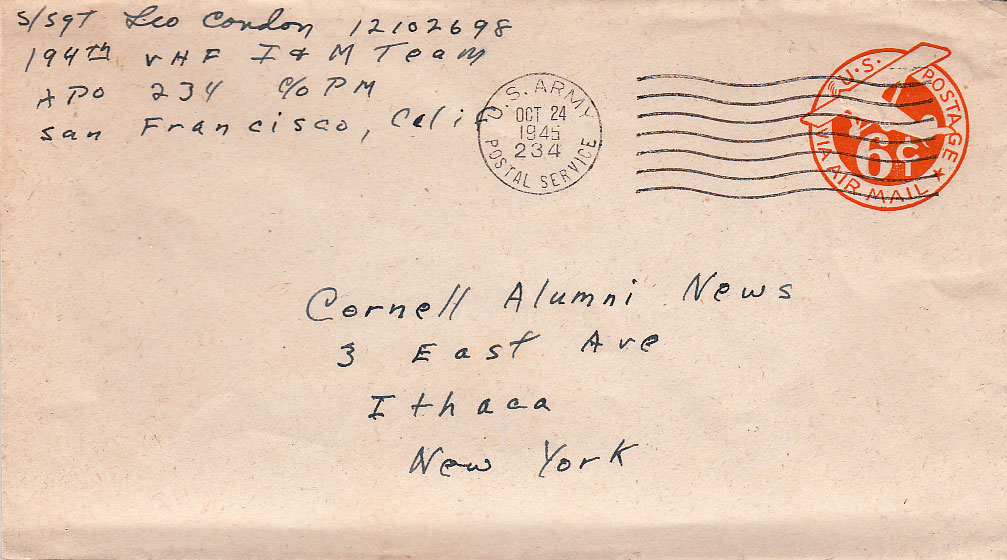 S/Sgt Leo Condon 12102698
194th VHF I & M Team
APO 234 c/o PM
San Francisco, Calif
U.S. ARMY
OCT 24
1945
234
POSTAL SERVICE
U.S. POSTAGE
6¢
VIA AIR MAIL
Cornell Alumni News
3 East Ave
Ithaca
New York